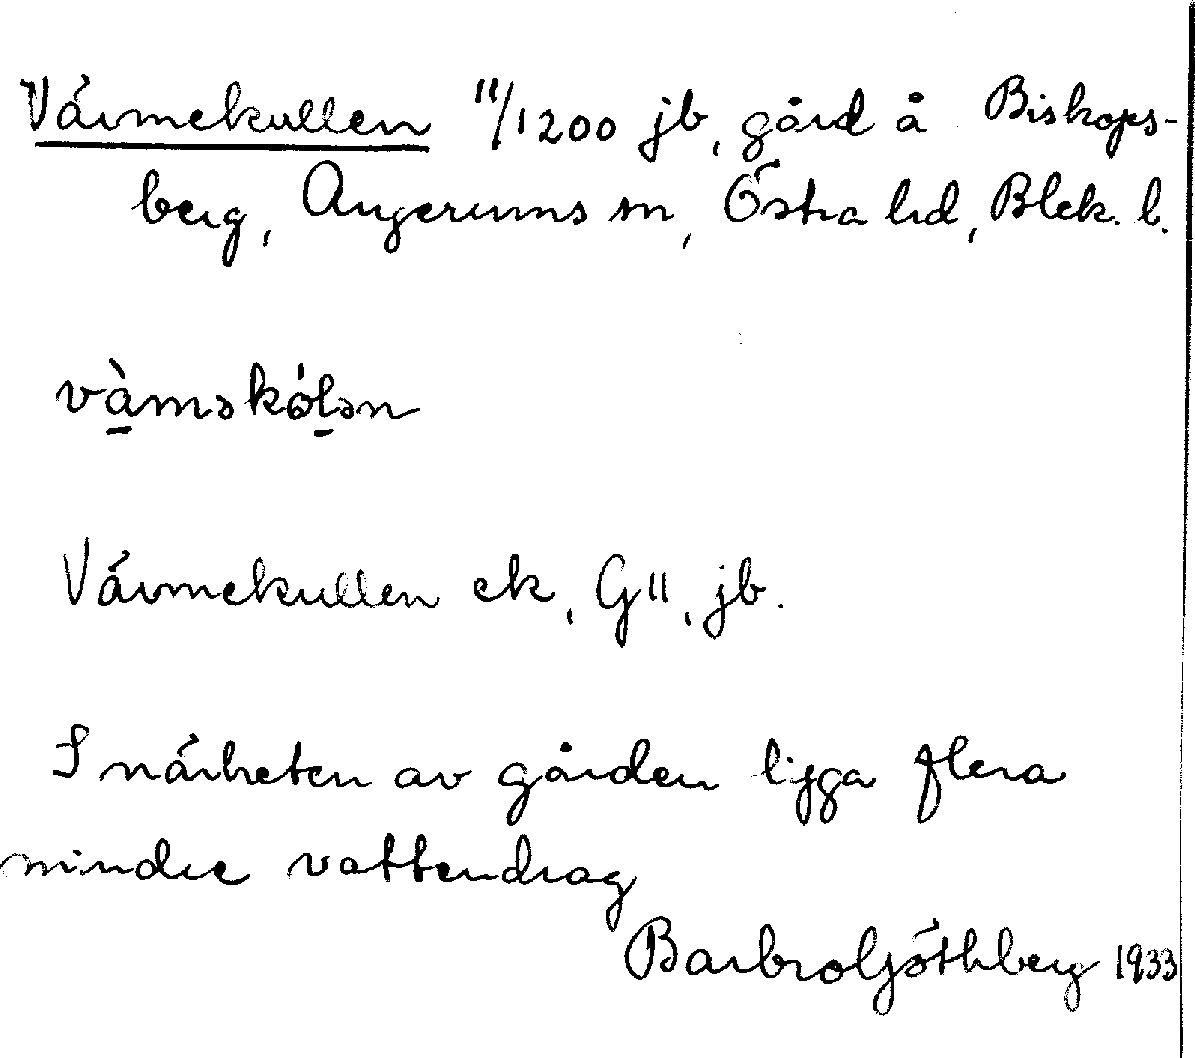 Värmekullen 11/1200 jb, gård å Biskops-
berg, Augerums sn, Östra hd, Blek. l.
vàməkólən
Värmekullen ek, G11, jb.
I närheten av gården ligga flera
mindre vattendrag
Barbro Göthberg 1933